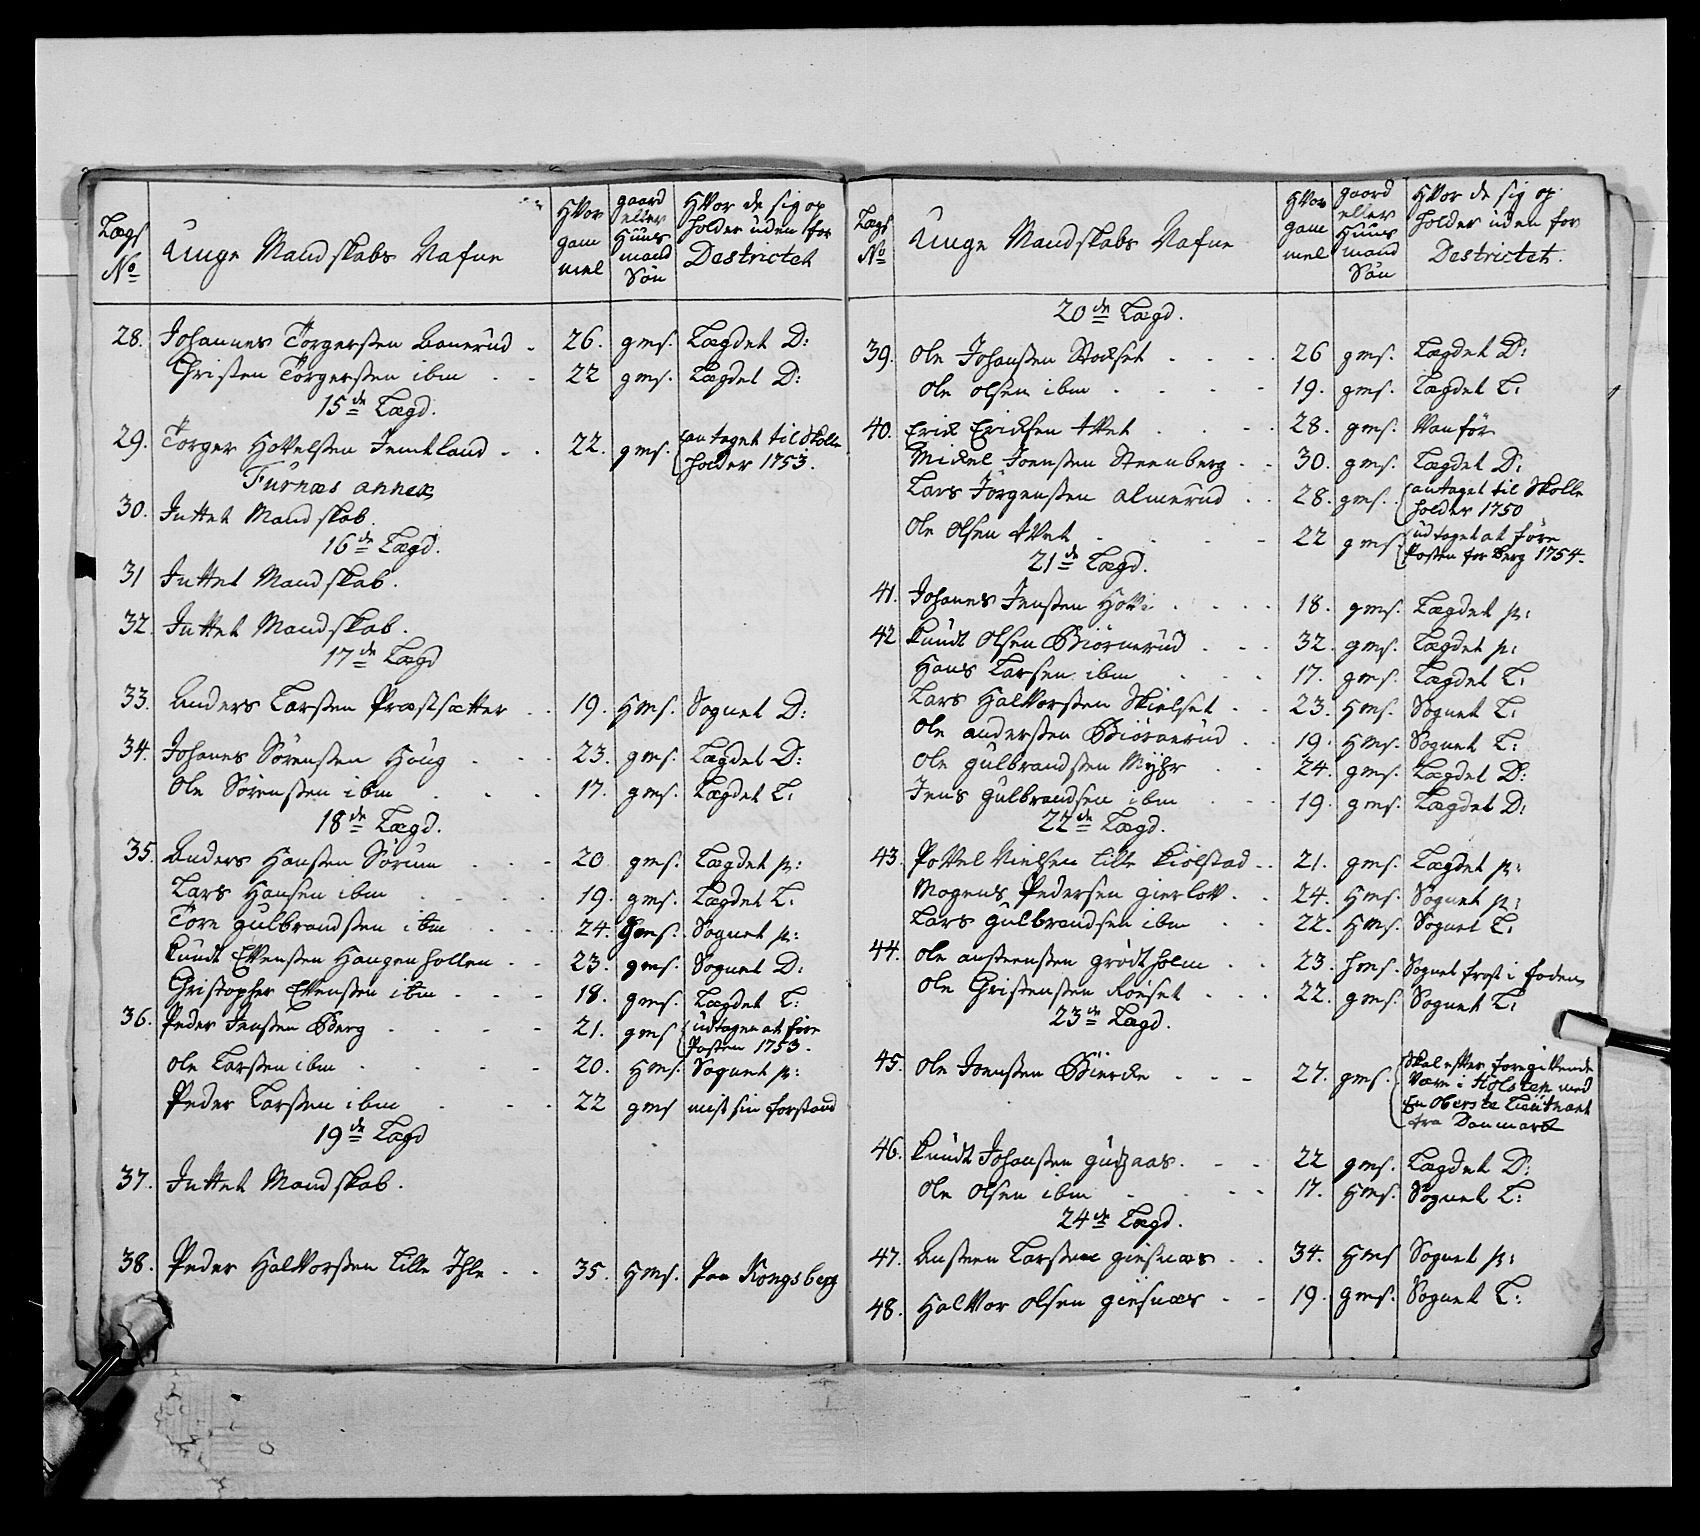 Lægs No | Unge Mandskabs Nafne | Hvor gam mel | gaard eller Huus mand Søn | Hvor de sig op holder uden for Destrictet
28. Johannes Torgersen Banerud . 26. gms. Lægdet D:
Christen Torgersen ibm . . 22 gms. Lægdet D:
15de Lægd.
29. Torger Hovelsen Jemtland . . 22. gms. antaget til Skole
holder 1753.
Furnæs annex
30. Intet Mandskab.
16de Lægd.
31 Intet Mandskab.
32. Intet Mandskab.
17de Lægd
33. Anders Larsen Præstsætter . . 19. Hms. Sognet D:
34. Johanes Sørensen Houg . . . 23. gms. Lægdet D:
Ole Sørensen ibm . . . 17. gms. Lægdet L:
18de Lægd.
35. Anders Hansen Sørum . . . 20 gms. Lægdet p:
Lars Hansen ibm . . . . 19. gms. Lægdet L:
Tore Gulbrandsen ibm . . . 24. Hms. Sognet p:
Knudt Evensen Haugenhollen . . 23. gms. Sognet D:
Christopher Evensen ibm . . . 18. gms. Lægdet L:
36. Peder Jensen Berg . . . . 21. gms udtagen at føre
Posten 1753.
Ole Larsen ibm . . . . 20. Hms. Sognet p:
Peder Larsen ibm . . . 22 gms mist sin forstand
19de Lægd
37. Intet Mandskab.
38. Peder Halvorsen Lille Ihle . . 35. Hms. Paa Kongsberg
Lægs No | Unge Mandskabs Nafne | Hvor gam mel | gaard eller Huus mand Søn | Hvor de sig op holder uden for Destrictet.
20de Lægd.
39. Ole Johansen Stockset . . . . 26 gms. Lægdet D:
Ole Olsen ibm . . . . 19. gms. Lægdet L:
40. Erick Ericksen Tvet . . . . 28. gms. Vanfør
Mickel Joensen Steenberg . . 30. gms. Lægdet D:
Lars Jørgensen Almerud . . 28. gms. antaget til Skolle
holder 1750
Ole Olsen Tvet . . . . 22 gms udtaget at føre
Posten for Berg 1754.
21de Lægd.
41. Johanes Jensen Hovi . . . . 18. gms. Lægdet p:
42 Knudt Olsen Biørnerud . . . 32. gms. Lægdet p:
Hans Larsen ibm . . . 17. gms. Lægdet L:
Lars Halvorsen Skielset . . 23. Hms. Sognet L:
Ole Andersen Biørnerud . . 19. Hms. Sognet L:
Ole Gulbrandsen Myhr . . 24. gms. Lægdet D:
Jens Gulbrandsen ibm . . . 19. gms. Lægdet D:
22de Lægd.
43. Povel Nielsen Lille Kiølstad . . 21. gms. Lægdet p:
Mogens Pedersen Gierlov . . 24. Hms. Sognet p:
Lars Gulbrandsen ibm . . 22. Hms. Sognet L:
44. Ole Anstensen Grødtholm . . 23. Hms. Sognet frost i foden
Ole Christensen Roeset . . . 22. gms. Sognet L:
23de Lægd.
45. Ole Joensen Biercke . . . 27. gms. Skal efter foregivende
være i Holsten med
En Oberste Lieutnant
fra Danmark
46. Knudt Johansen Gudsaas. . . 22 gms. Lægdet D:
Ole Olsen ibm . . . . 17. Hms. Sognet L:
24de Lægd.
47. Ansteen Larsen Giesnæs . . 34. Hms Sognet p:
48. Halvor Olsen Giesnæs . . 19. gms. Sognet L: